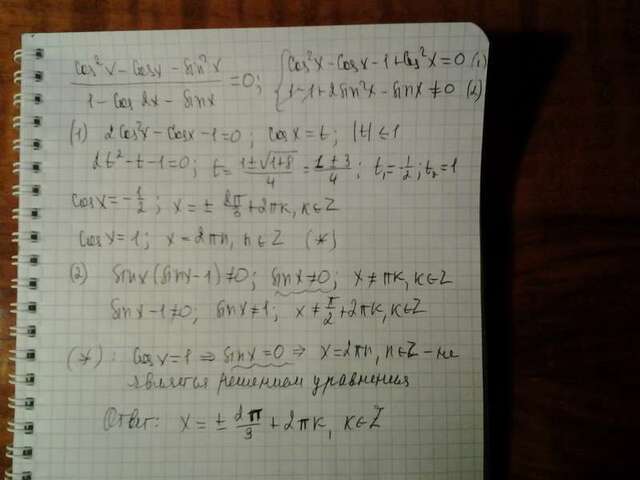 (cos²x - cosx - sin²x) / (1 - cos 2x - sinx) = 0; { cos²x - cosx - 1 + cos²x = 0 (1)
1 - 1 + 2sin²x - sinx ≠ 0 (2)
(1) 2cos²x - cosx - 1 = 0; cosx = t; |t| ≤ 1
2t² - t - 1 = 0; t = (1 ± √(1+8)) / 4 = (1 ± 3) / 4; t₁ = -1/2; t₂ = 1
cosx = -1/2; x = ± 2π/3 + 2πk, k∈Z
cosx = 1; x = 2πn, n∈Z (*)
(2) sinx(sinx - 1) ≠ 0; sinx ≠ 0; x ≠ πk, k∈Z
sinx - 1 ≠ 0; sinx ≠ 1; x ≠ π/2 + 2πk, k∈Z
(*): cosx = 1 ⇒ sinx = 0 ⇒ x = 2πn, n∈Z - не
является решением уравнения
Ответ: x = ± 2π/3 + 2πk, k∈Z